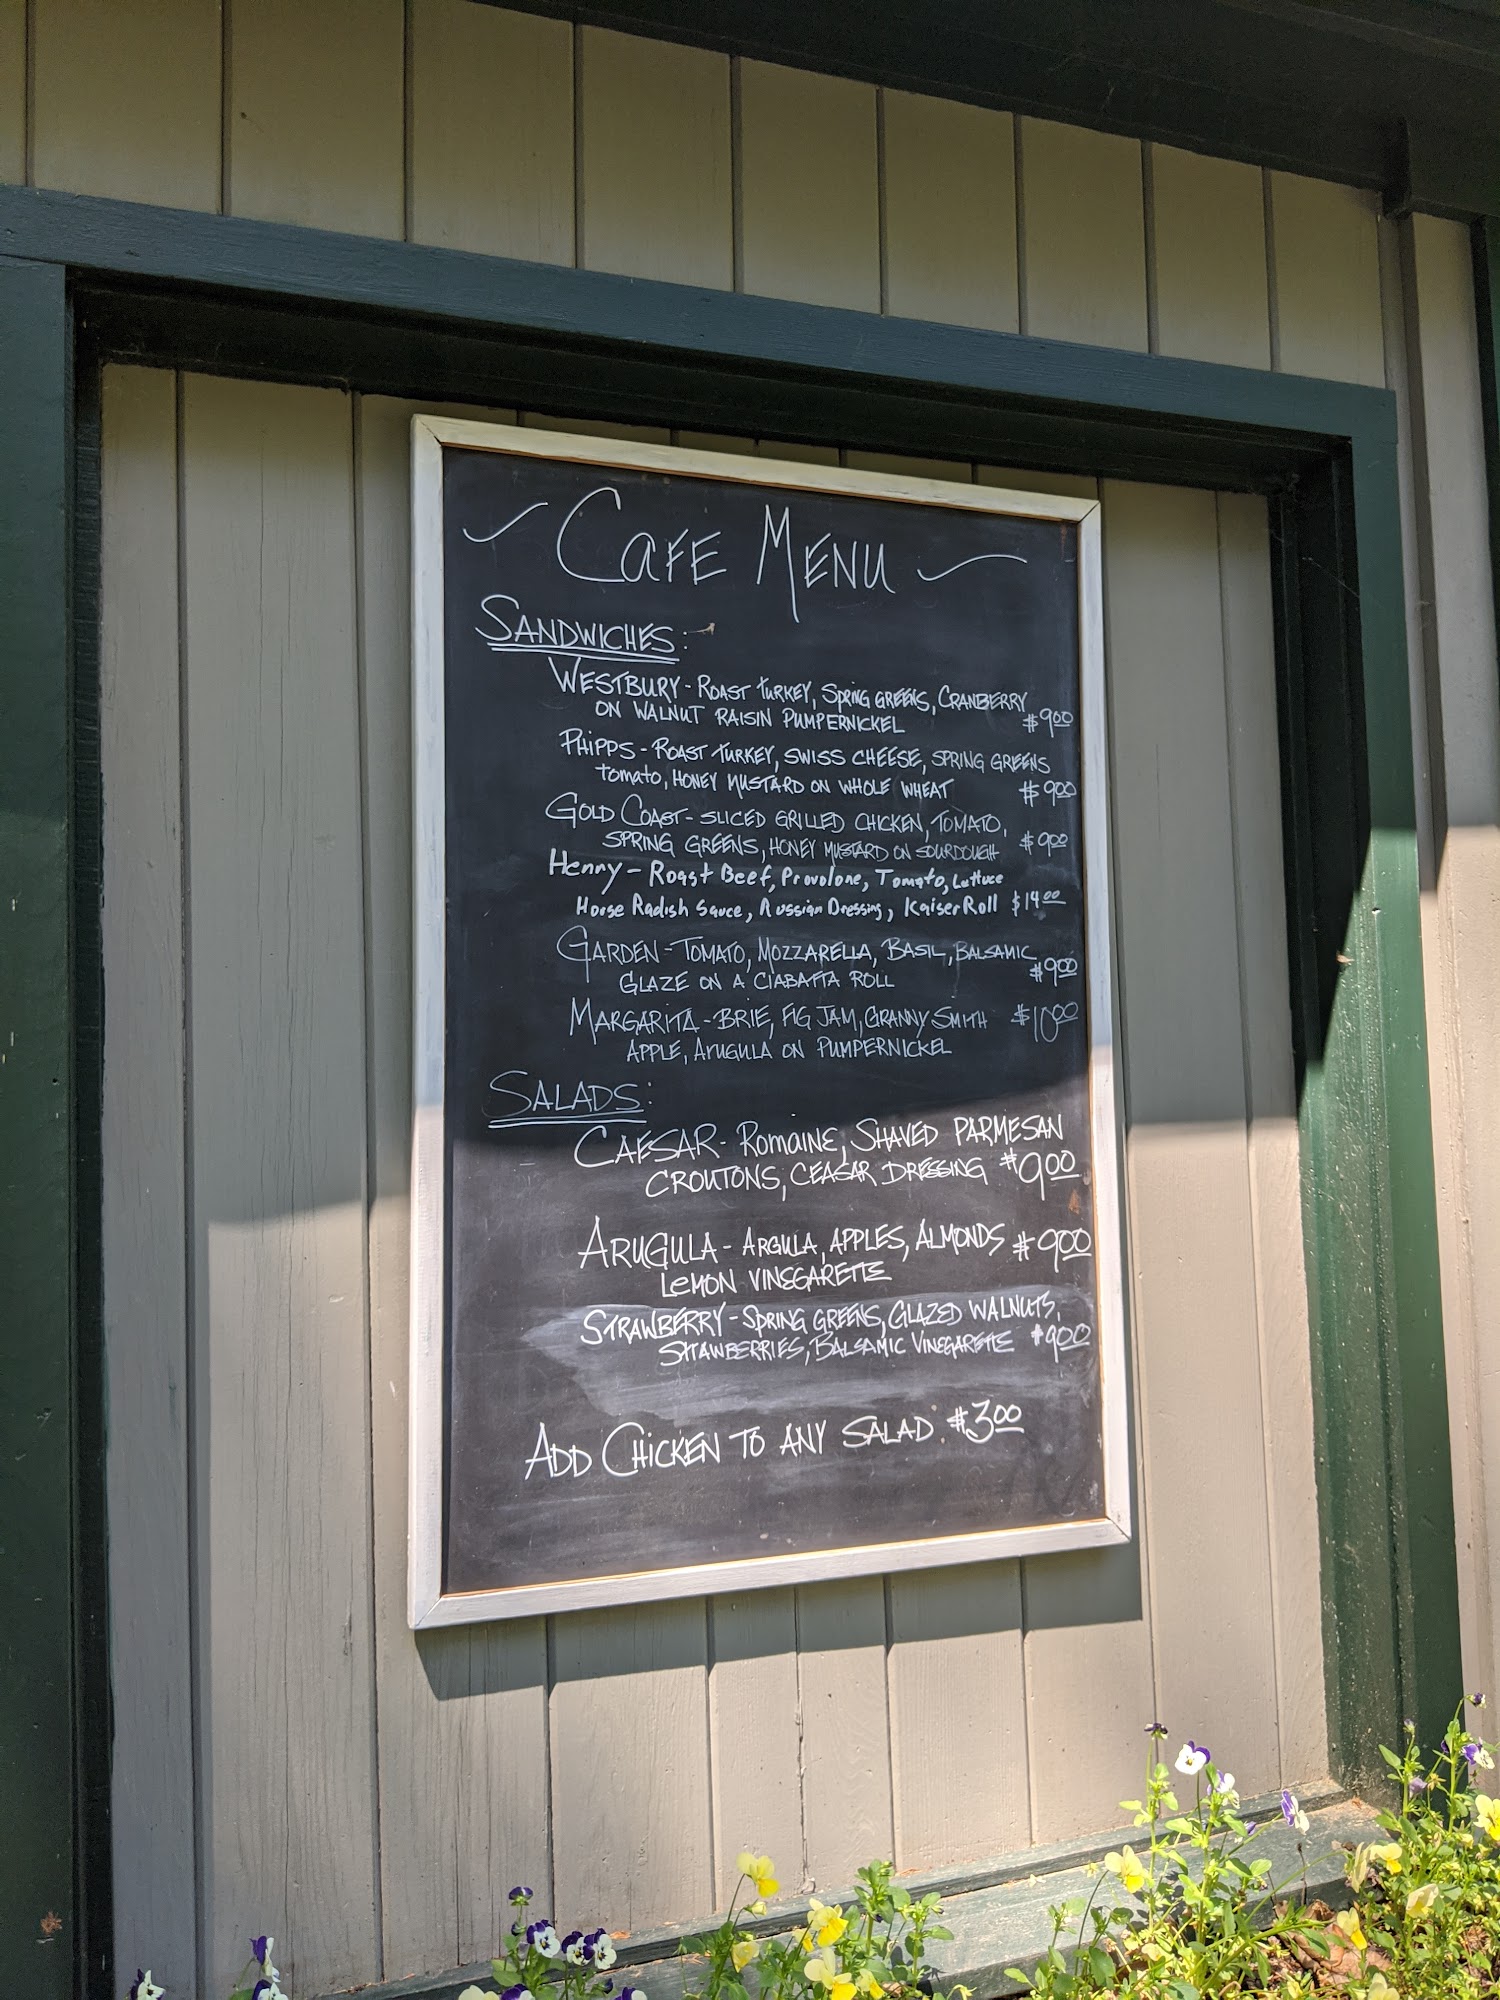 CAFE MENU
SANDWICHES:
WESTBURY - ROAST TURKEY, SPRING GREENS, CRANBERRY
ON WALNUT RAISIN PUMPERNICKEL $9.00
PHIPPS - ROAST TURKEY, SWISS CHEESE, SPRING GREENS
TOMATO, HONEY MUSTARD ON WHOLE WHEAT $9.00
GOLD COAST - SLICED GRILLED CHICKEN, TOMATO,
SPRING GREENS, HONEY MUSTARD ON SOURDOUGH $9.00
Henny - Roast Beef, Provolone, Tomato, Lettuce
Horse Radish Sauce, Russian Dressing, Kaiser Roll $14.00
GARDEN - TOMATO, MOZZARELLA, BASIL, BALSAMIC
GLAZE ON A CIABATTA ROLL $9.00
MARGARITA - BRIE, FIG JAM, GRANNY SMITH $10.00
APPLE, ARUGULA ON PUMPERNICKEL
SALADS:
CAESAR - ROMAINE, SHAVED PARMESAN
CROUTONS, CEASAR DRESSING $9.00
ARUGULA - ARGULA, APPLES, ALMONDS $9.00
LEMON VINEGARETTE
STRAWBERRY - SPRING GREENS, GLAZED WALNUTS,
STRAWBERRIES, BALSAMIC VINEGARETTE $9.00
ADD CHICKEN TO ANY SALAD: $3.00